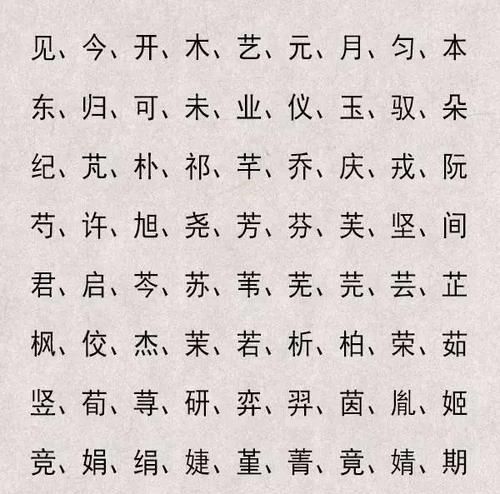 见、今、开、木、艺、元、月、匀、本
东、归、可、未、业、仪、玉、驭、朵
纪、芃、朴、祁、芊、乔、庆、戎、阮
芍、许、旭、尧、芳、芬、芙、坚、间
君、启、芩、苏、苇、芜、芫、芸、芷
枫、佼、杰、茉、若、析、柏、荣、茹
竖、荀、荨、研、弈、羿、茵、胤、姬
竞、娟、绢、婕、堇、菁、竟、婧、期